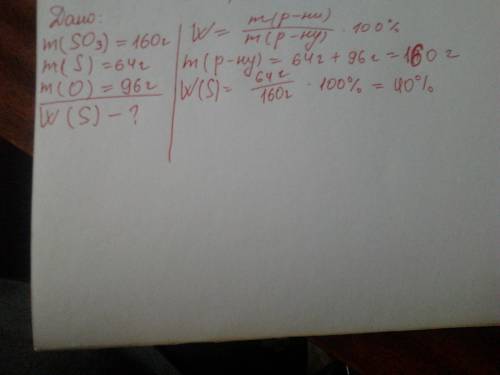 Дано:
m(SO₃)=160г
m(S)=64г
m(O)=96г
W(S)-?
W= m(р-ни)/m(р-ну) · 100%
m(р-ну)= 64г+96г=160г
W(S)= 64г/160г · 100% = 40%